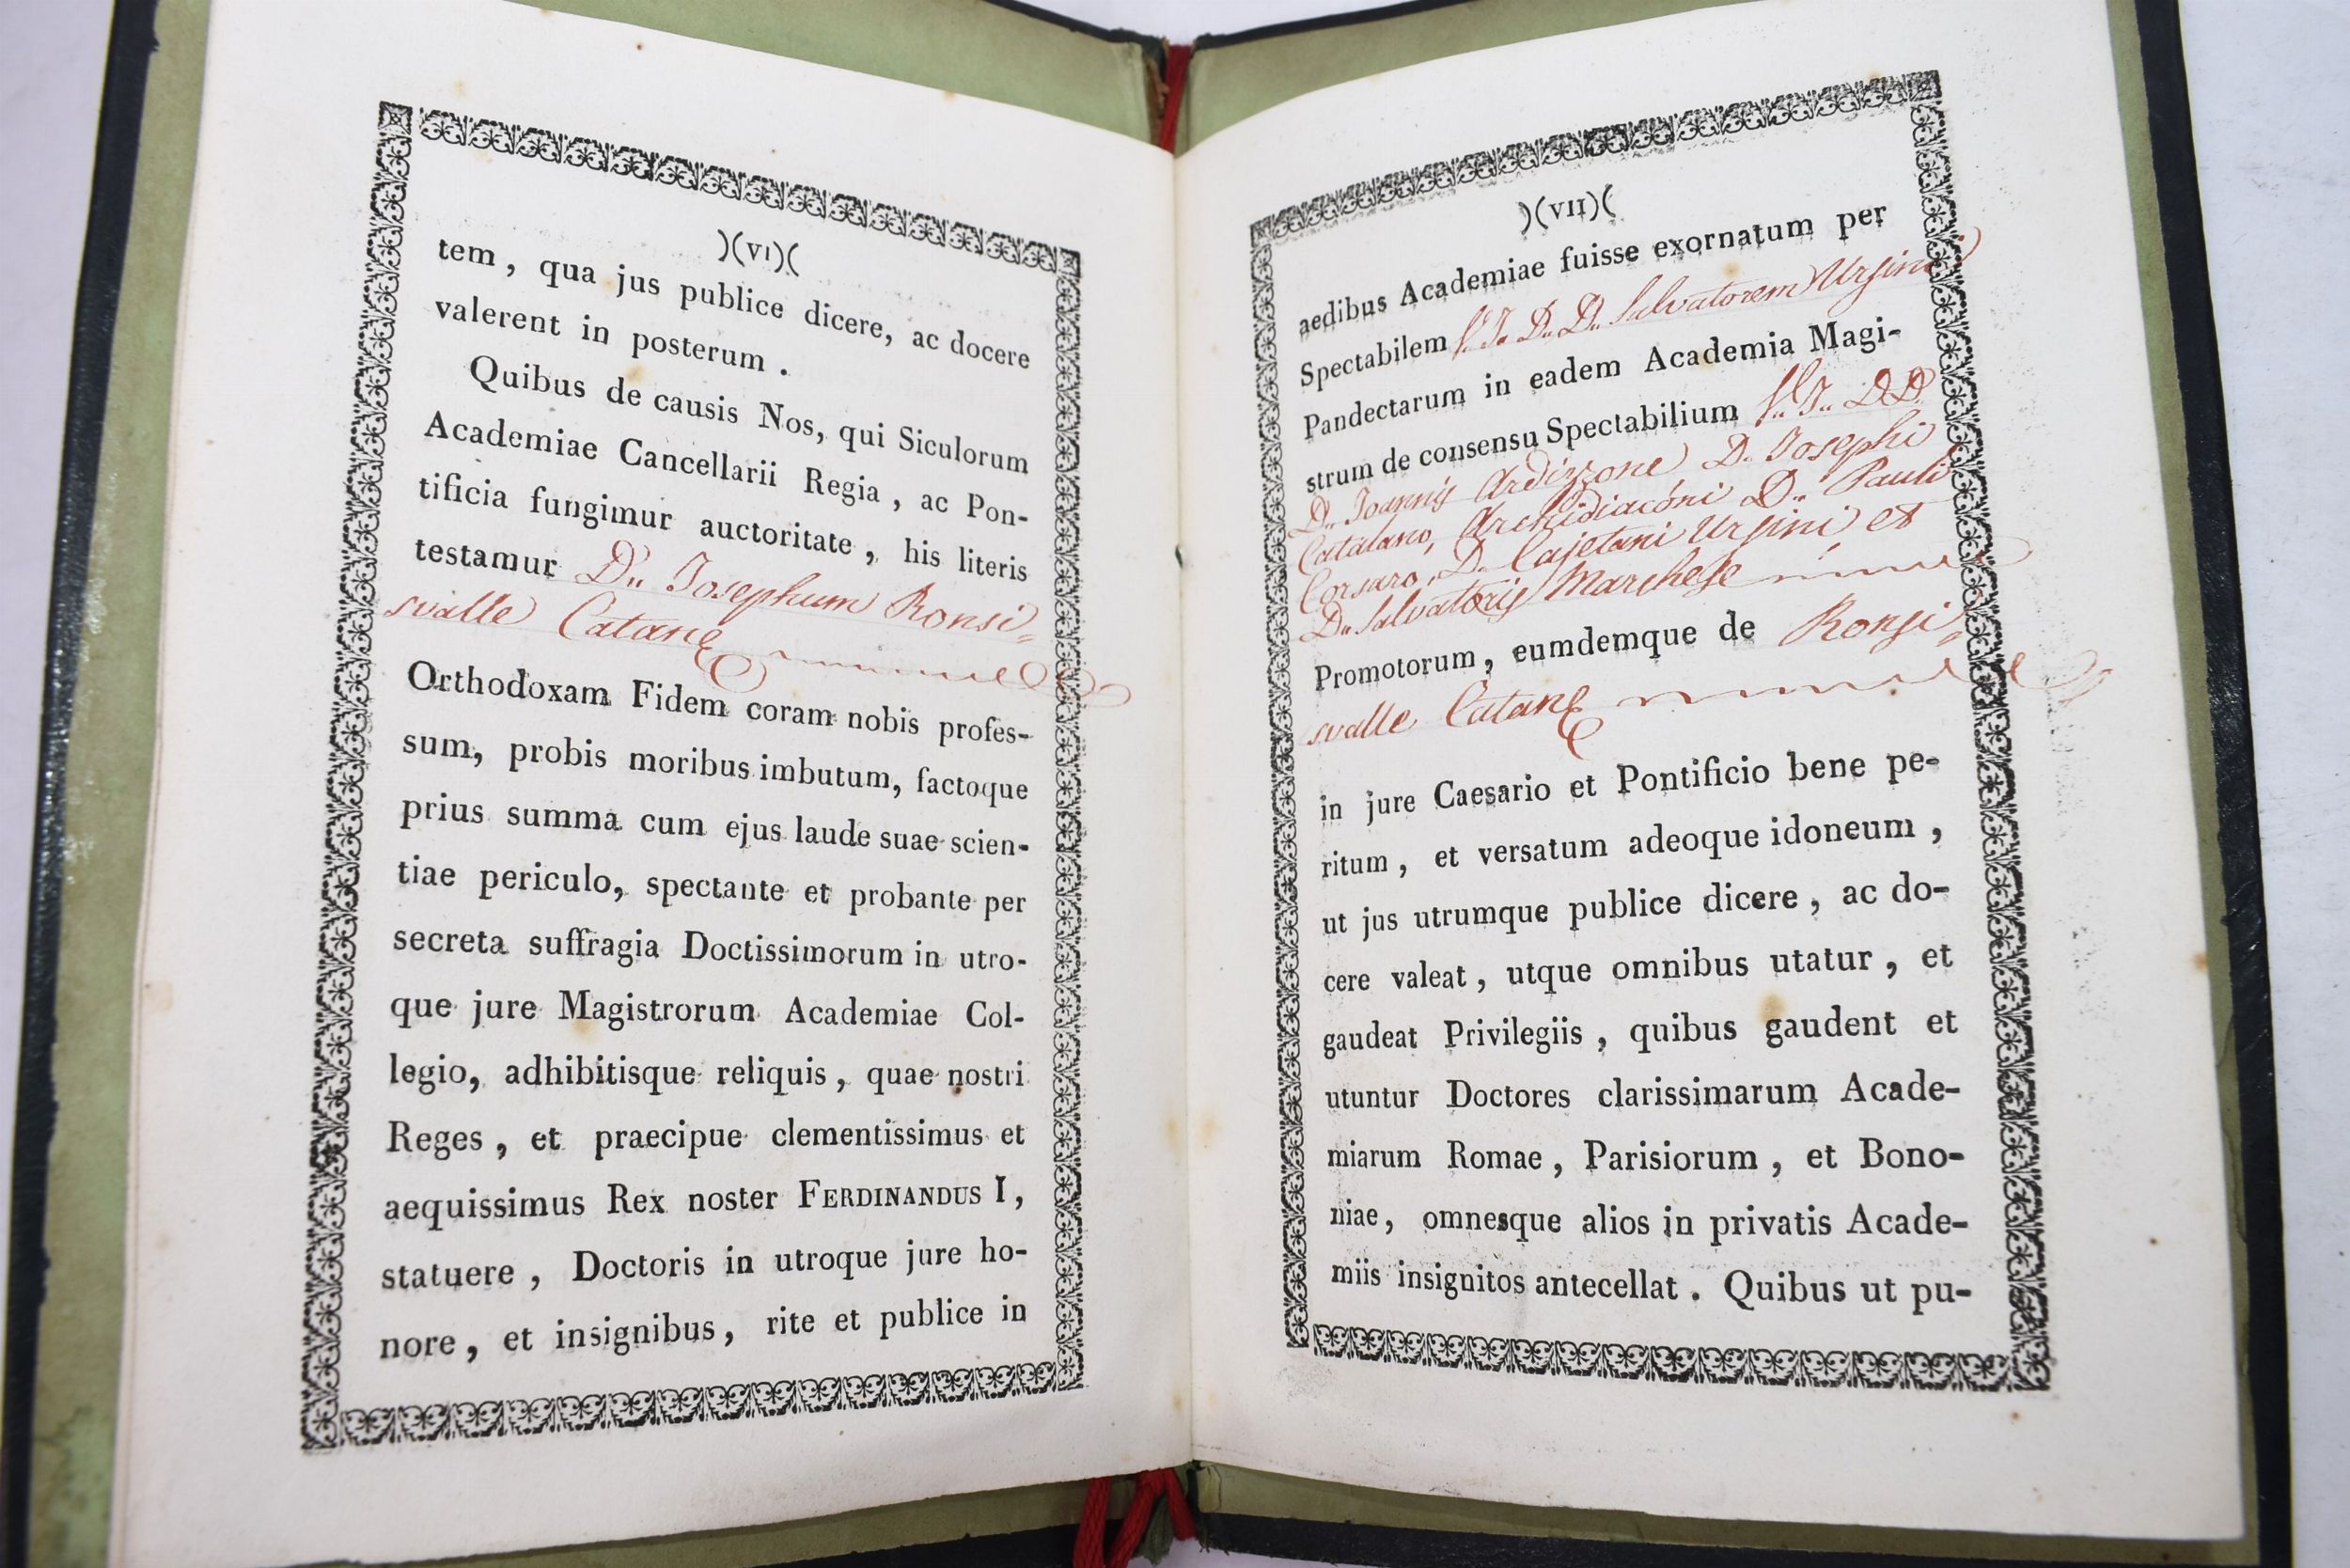 )(VI)(
tem, qua jus publice dicere, ac docere
valerent in posterum.
Quibus de causis Nos, qui Siculorum
Academiae Cancellarii Regia, ac Pon-
tificia fungimur auctoritate, his literis
testamur D.. Josephum Ronsi=
svalle Catane
Orthodoxam Fidem coram nobis profes-
sum, probis moribus imbutum, factoque
prius summa cum ejus laude suae scien-
tiae periculo, spectante et probante per
secreta suffragia Doctissimorum in utro-
que jure Magistrorum Academiae Col-
legio, adhibitisque reliquis, quae nostri
Reges, et praecipue clementissimus et
aequissimus Rex noster FERDINANDUS I,
statuere, Doctoris in utroque jure ho-
nore, et insignibus, rite et publice in
)(VII)(
aedibus Academiae fuisse exornatum per
Spectabilem D.. D.. Salvatorem Ursino
Pandectarum in eadem Academia Magi-
strum de consensu Spectabilium DD.
D.. Joannis Ardizzone D.. Josephi
Catalano, Archidiaconi D.. Pauli
Corsaro, D.. Cajetani Ursini et
D.. Salvatoris Marchese
Promotorum, eumdemque de Ronsi=
svalle Catane
in jure Caesario et Pontificio bene pe-
ritum, et versatum adeoque idoneum,
ut jus utrumque publice dicere, ac do-
cere valeat, utque omnibus utatur, et
gaudeat Privilegiis, quibus gaudent et
utuntur Doctores clarissimarum Acade-
miarum Romae, Parisiorum, et Bono-
niae, omnesque alios in privatis Acade-
miis insignitos antecellat. Quibus ut pu-